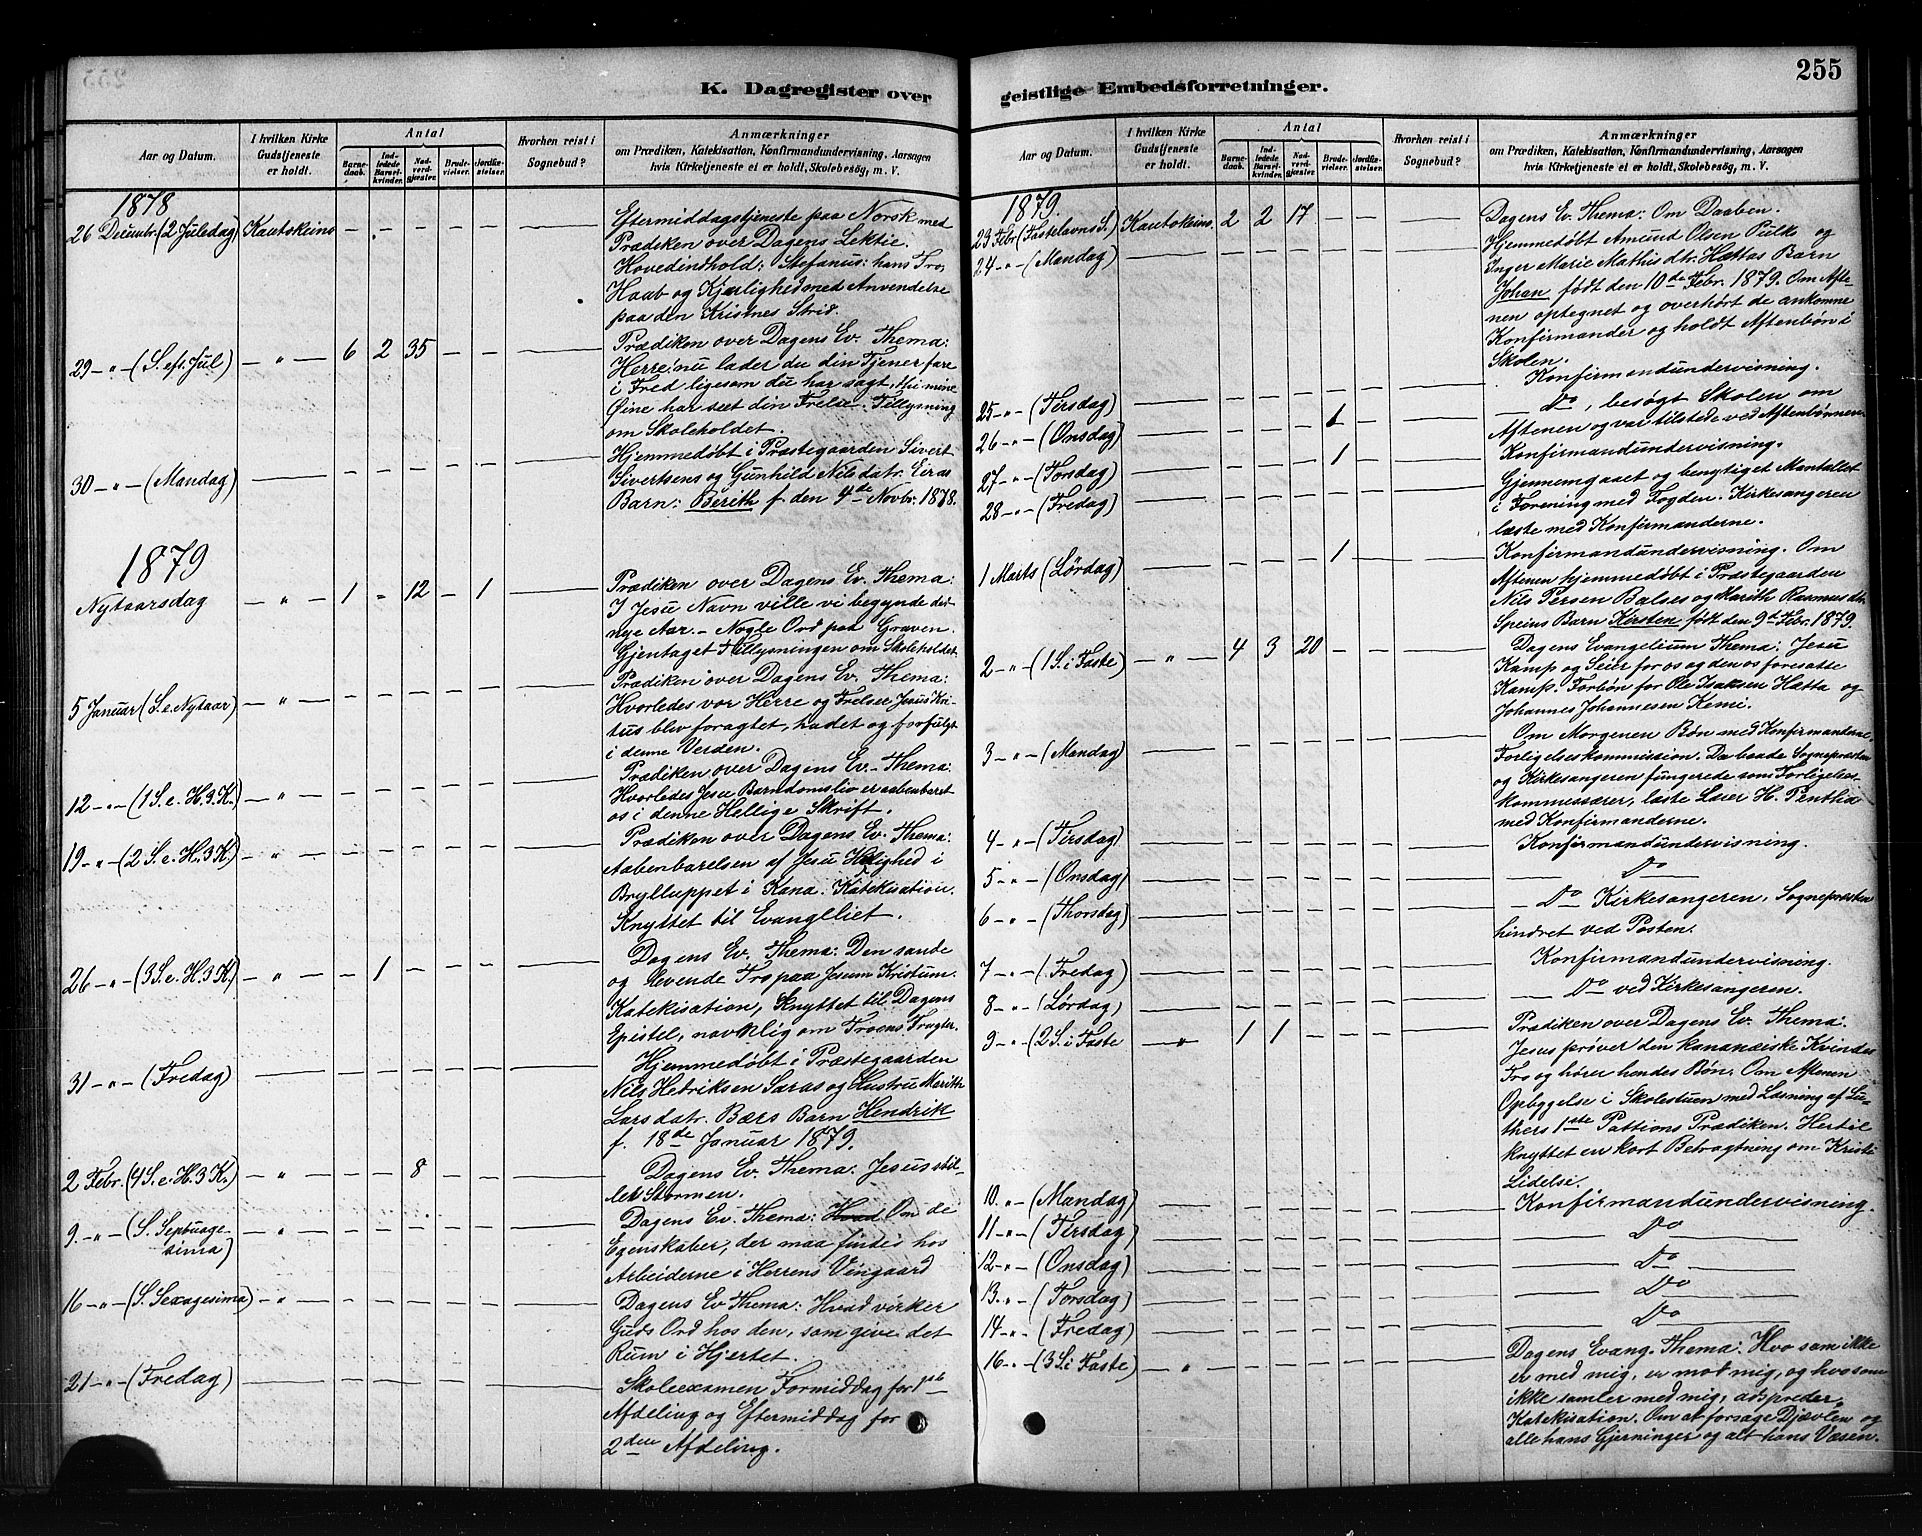 255
K. Dagregister over
geistlige Embedsforretninger.
Aar og Datum.
I hvilken Kirke Gudstjeneste er holdt.
Antal
Barnedaab.
Indledede Barselkvinder.
Nadverdgjester.
Brudevielser.
Jordfæstelser.
Hvorhen reist i Sognebud?
Anmærkninger
om Prædiken, Katekisation, Konfirmandundervisning, Aarsagen
hvis Kirketjeneste ei er holdt, Skolebesøg, m. V.
1878
26 Decembr. (2 Juledag) Kautokeino – – – – –
Eftermiddagstjeneste paa Norsk med
Prædiken over Dagens Lektie.
Hovedindhold: Stefanus: hans Tro
Haab og Kjærlighed med Anvendelse
paa den Kristnes Strid.
29 -"- (S. eft. Jul) — " — 6 2 35 – –
Prædiken over Dagens Ev. Thema:
Herre! nu lader du din Tjener fare
i Fred ligesom du har sagt, thi mine
Øine har seet din Frelse. Tillysning
om Skoleholdet.
30 -"- (Mandag) — – – – – –
Hjemmedøbt i Præstegaarden Sivert
Sivertsens og Gunhild Nilsdatr. Eiras
Barn: Berith f. den 4de Novbr. 1878.
1879
Nytaarsdag — " — 1 – 12 – 1
Prædiken over Dagens Ev. Thema:
I Jesu Navn ville vi begynde det
nye Aar. – Nogle Ord paa Graven.
Gjentaget Tillysningen om Skoleholdet.
5 Januar (S. e. Nytaar) — " — – – – – –
Prædiken over Dagens Ev. Thema:
Hvorledes vor Herre og Frelser Jesus Kri-
tus blev foragtet, hadet og forfulgt
i denne Verden.
12 -"- (1 S. e. H. 3 K.) — " — – – – – –
Prædiken over Dagens Ev. Thema:
Hvorledes Jesu Barndomsliv er aabenbaret
os i denne Hellige Skrift.
19 -"- (2 S. e. H. 3 K.) — " — – – – – –
Prædiken over Dagens Ev. Thema:
Aabenbarelsen af Jesu Herlighed i
Brylluppet i Kana. Katekisation.
Knyttet til Evangeliet.
26 -"- (3 S. e. H. 3 K.) — " — – 1 – – –
Dagens Ev. Thema: Den sande
og levende Tro paa Jesum Kristum.
Katekisation, knyttet til Dagens
Epistel, navnlig om Troens Frugter.
31 -"- (Fredag) — – – – – –
Hjemmedøbt i Præstegaarden
Nils Hedriksen Saras og Hustru Marith
Larsdatr. Bærs Barn Hendrik
f. 18de Januar 1879.
2 Febr. (4 S. e. H. 3 K.) — " — – – 8 – –
Dagens Ev. Thema: Jesus stil-
ler Stormen.
9 -"- (S. Septuage-
sima) — " — – – – – –
Dagens Ev. Thema: Hvad Om de
Egenskaber, der maa findes hos
Arbeiderne i Herrens Vingaard
16 -"- (S. Sexagesima) — " — – – – – –
Dagens Ev. Thema: Hvad virker
Guds Ord hos den, som give det
Rum i Hjertet.
21 -"- (Fredag) — – – – – –
Skoleexamen Formiddag for 1ste
Afdeling og Eftermiddag for
2den Afdeling.
Aar og Datum.
I hvilken Kirke Gudstjeneste er holdt.
Antal
Barnedaab.
Indledede Barselkvinder.
Nadverdgjester.
Brudevielser.
Jordfæstelser.
Hvorhen reist i Sognebud?
Anmærkninger
om Prædiken, Katekisation, Konfirmandundervisning, Aarsagen
hvis Kirketjeneste ei er holdt, Skolebesøg, m. V.
1879.
23 Febr. (Fastelavns S.) Kautokeino. 2 2 17 – –
Dagens Ev. Thema: Om Daaben.
24 -"- (Mandag) — – – – – –
Hjemmedøbt Amund Olsen Pulks og
Inger Marie Mathisdtr. Hættas Barn
Johan født den 10de Febr. 1879. Om Afte-
nen optegnet og overhørt de ankomne
Konfirmander og holdt Aftenbøn i
Skolen.
25 -"- (Tirsdag) — – – – – –
Konfirmandundervisning.
26 -"- (Onsdag) — – – – 1 –
— Do, besøgt Skolen om
Aftenen og var tilstede ved Aftenbønnen.
27 -"- (Torsdag) — – – – 1 –
Konfirmandundervisning.
28 -"- (Fredag) — – – – – –
Gjennemgaaet og benytiget Mantallet
i Forening med Fogden. Kirkesangeren
læste med Konfirmanderne.
1 Marts (Lørdag) — – – – 1 –
Konfirmandundervisning. Om
Aftenen hjemmedøbt i Præstegaarden
Nils Persen Balses og Marith Rasmusdtr.
Speins Barn Kirsten født den 9de Febr. 1879.
2 -"- (1 S. i Faste) — " — 4 3 20 – –
Dagens Evangelium Thema: Jesu
Kamp og Seier for os og den os foresatte
Kamp. Forbøn for Ole Isaksen Hætta og
Johannes Johannesen Kemi.
3 -"- (Mandag) — – – – – –
Om Morgenen Bøn med Konfirmanderne.
Forligelseskommission. Da baade Sognepræsten
og Kirkesangeren fungerede som Forligelses-
kommessærer, læste Lærer H. Penthá
med Konfirmanderne.
4 -"- (Tirsdag) — – – – – –
Konfirmandundervisning.
5 -"- (Onsdag) — – – – – –
— Do —
6 -"- (Thorsdag) — – – – – –
— Do Kirkesangeren, Sognepræsten
hindret ved Posten.
7 -"- (Fredag) — – – – – –
Konfirmandundervisning.
8 -"- (Lørdag) — – – – – –
— Do ved Kirkesangeren.
9 -"- (2 S. i Faste — " — 1 1 – – –
Prædiken over Dagens Ev. Thema:
Jesus prøver den kananæiske Kvindes
Tro og hører hendes Bøn. Om Aftenen
Opbyggelse i Skolestuen med Læsning af Lu-
thers 1ste Passions Prædiken. Hertil
knyttet en kort Betragtning om Kristi
Lidelse.
10. -"- (Mandag) — – – – – –
Konfirmandundervisning.
11 -"- (Tirsdag) — – – – – –
— Do —
12 -"- (Onsdag) — – – – – –
— Do —
13. -"- (Torsdag) — – – – – –
— Do —
14 -"- (Fredag) — – – – – –
— Do —
16 -"- (3 S. i Faste) — " — – – – – –
Dagens Evang. Thema: Hvo som ikke
er med mig, er mod mig, og hvo som
ikke samler med mig, adspreder.
Katekisation. Om at forsage Djævlen og
alle hans Gjerninger og alt hans Væsen.